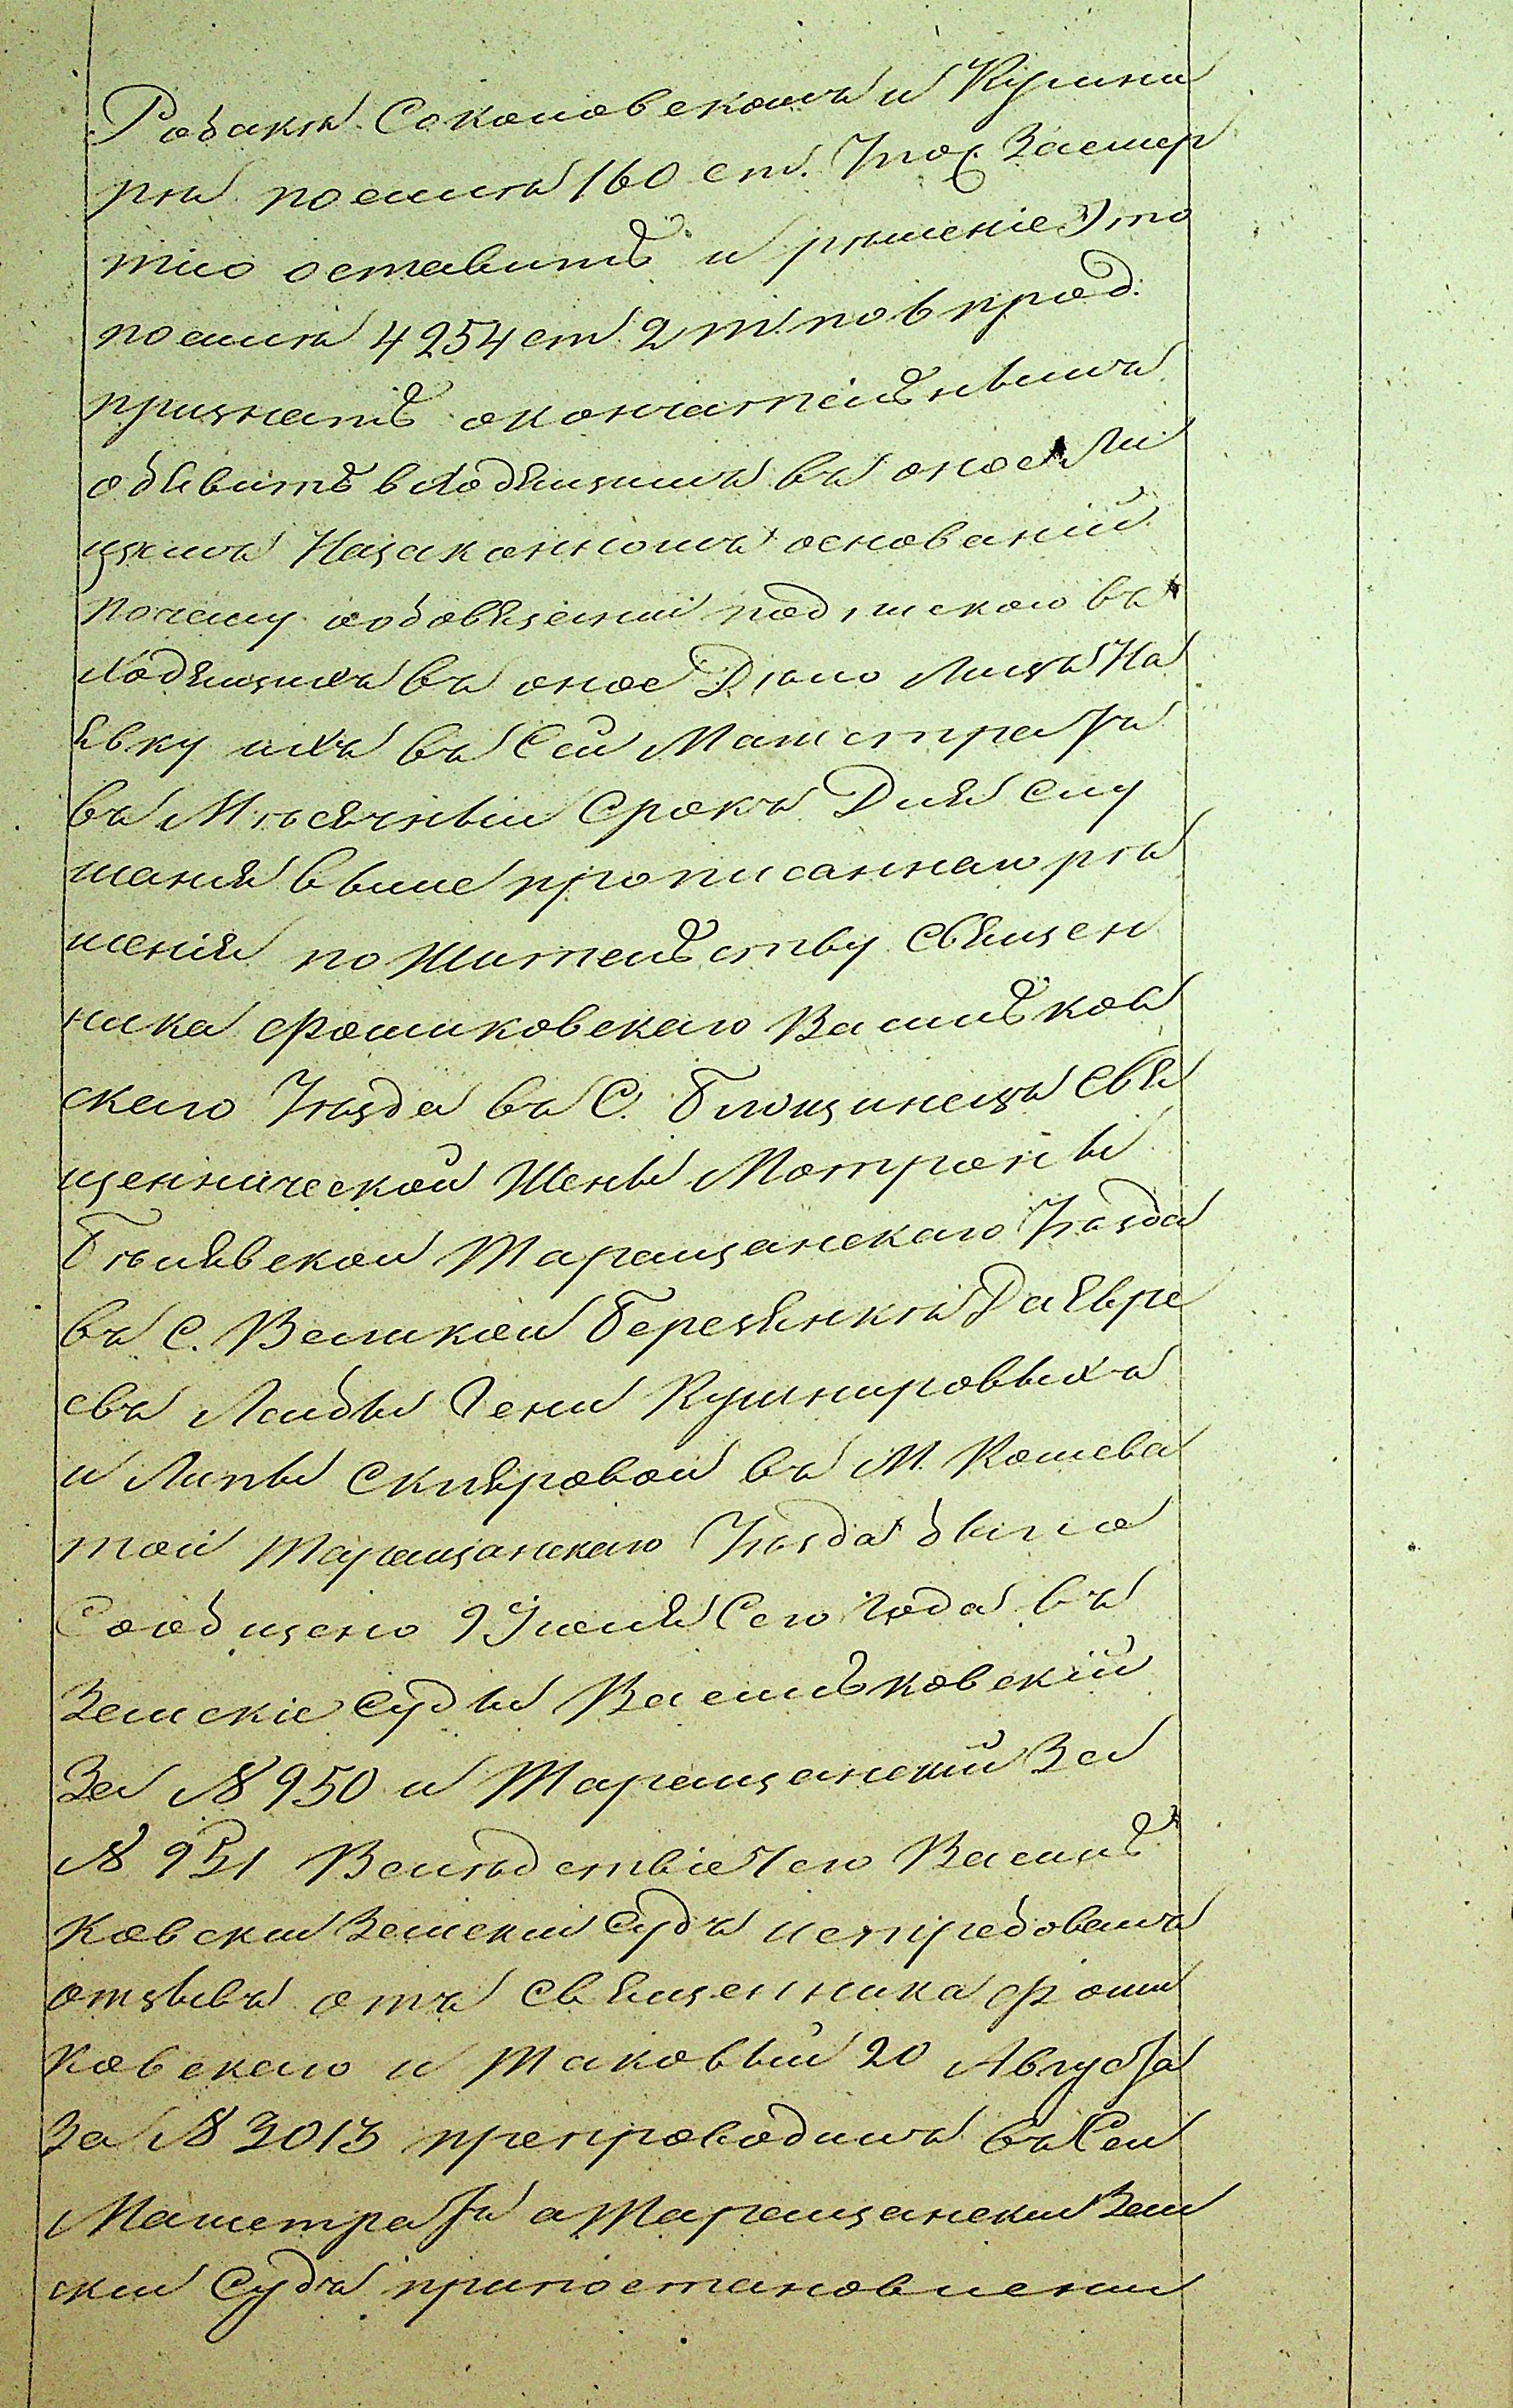 Рабакъ Соколовскомъ и Кушни
рѣ посилѣ 160 ст. Улож. Засмер
тію оставить и рѣшеніе Это
посилѣ 4254 ст. 2 т. по 6 прод.
признать окончательнымъ
объявить входящимъ въ оное Ли
цамъ Назаконномъ основаніи
почему ообовязеніи подпискою въ
ходящихъ въ оное Дѣло Лицъ На
явку ихъ въ Сей Магистратъ
въ Мѣсячный Срокъ Для Слу
шанія вышепрописаннаго рѣ
шенія по Жительству Священ
ника Фошиковскаго Васильков
скаго Уѣзда въ С. Блощинецъ Свя
щеннической Жены Мотроны
Бѣлявской Таращанскаго Уѣзда
въ С. Великой Березянкѣ Да Евре
евъ Лейбы Гени Кушнировыхъ
и Липы Скляровой въ М. Кошева
той Таращанскаго Уѣзда было
Сообщено 9 Іюля Сего Года въ
Земскіе Суды Васильковскій
За № 950 и Таращанскій За
№ 951 Вслѣдствіе чего Василь
ковскій Земскій Судъ истребовалъ
отзывъ отъ Священника Фоши
ковскаго и таковый 20 Августа
За № 3013 препроводилъ въ Сей
Магистратъ а Таращанскій Зем
скій Судъ припостановленіи